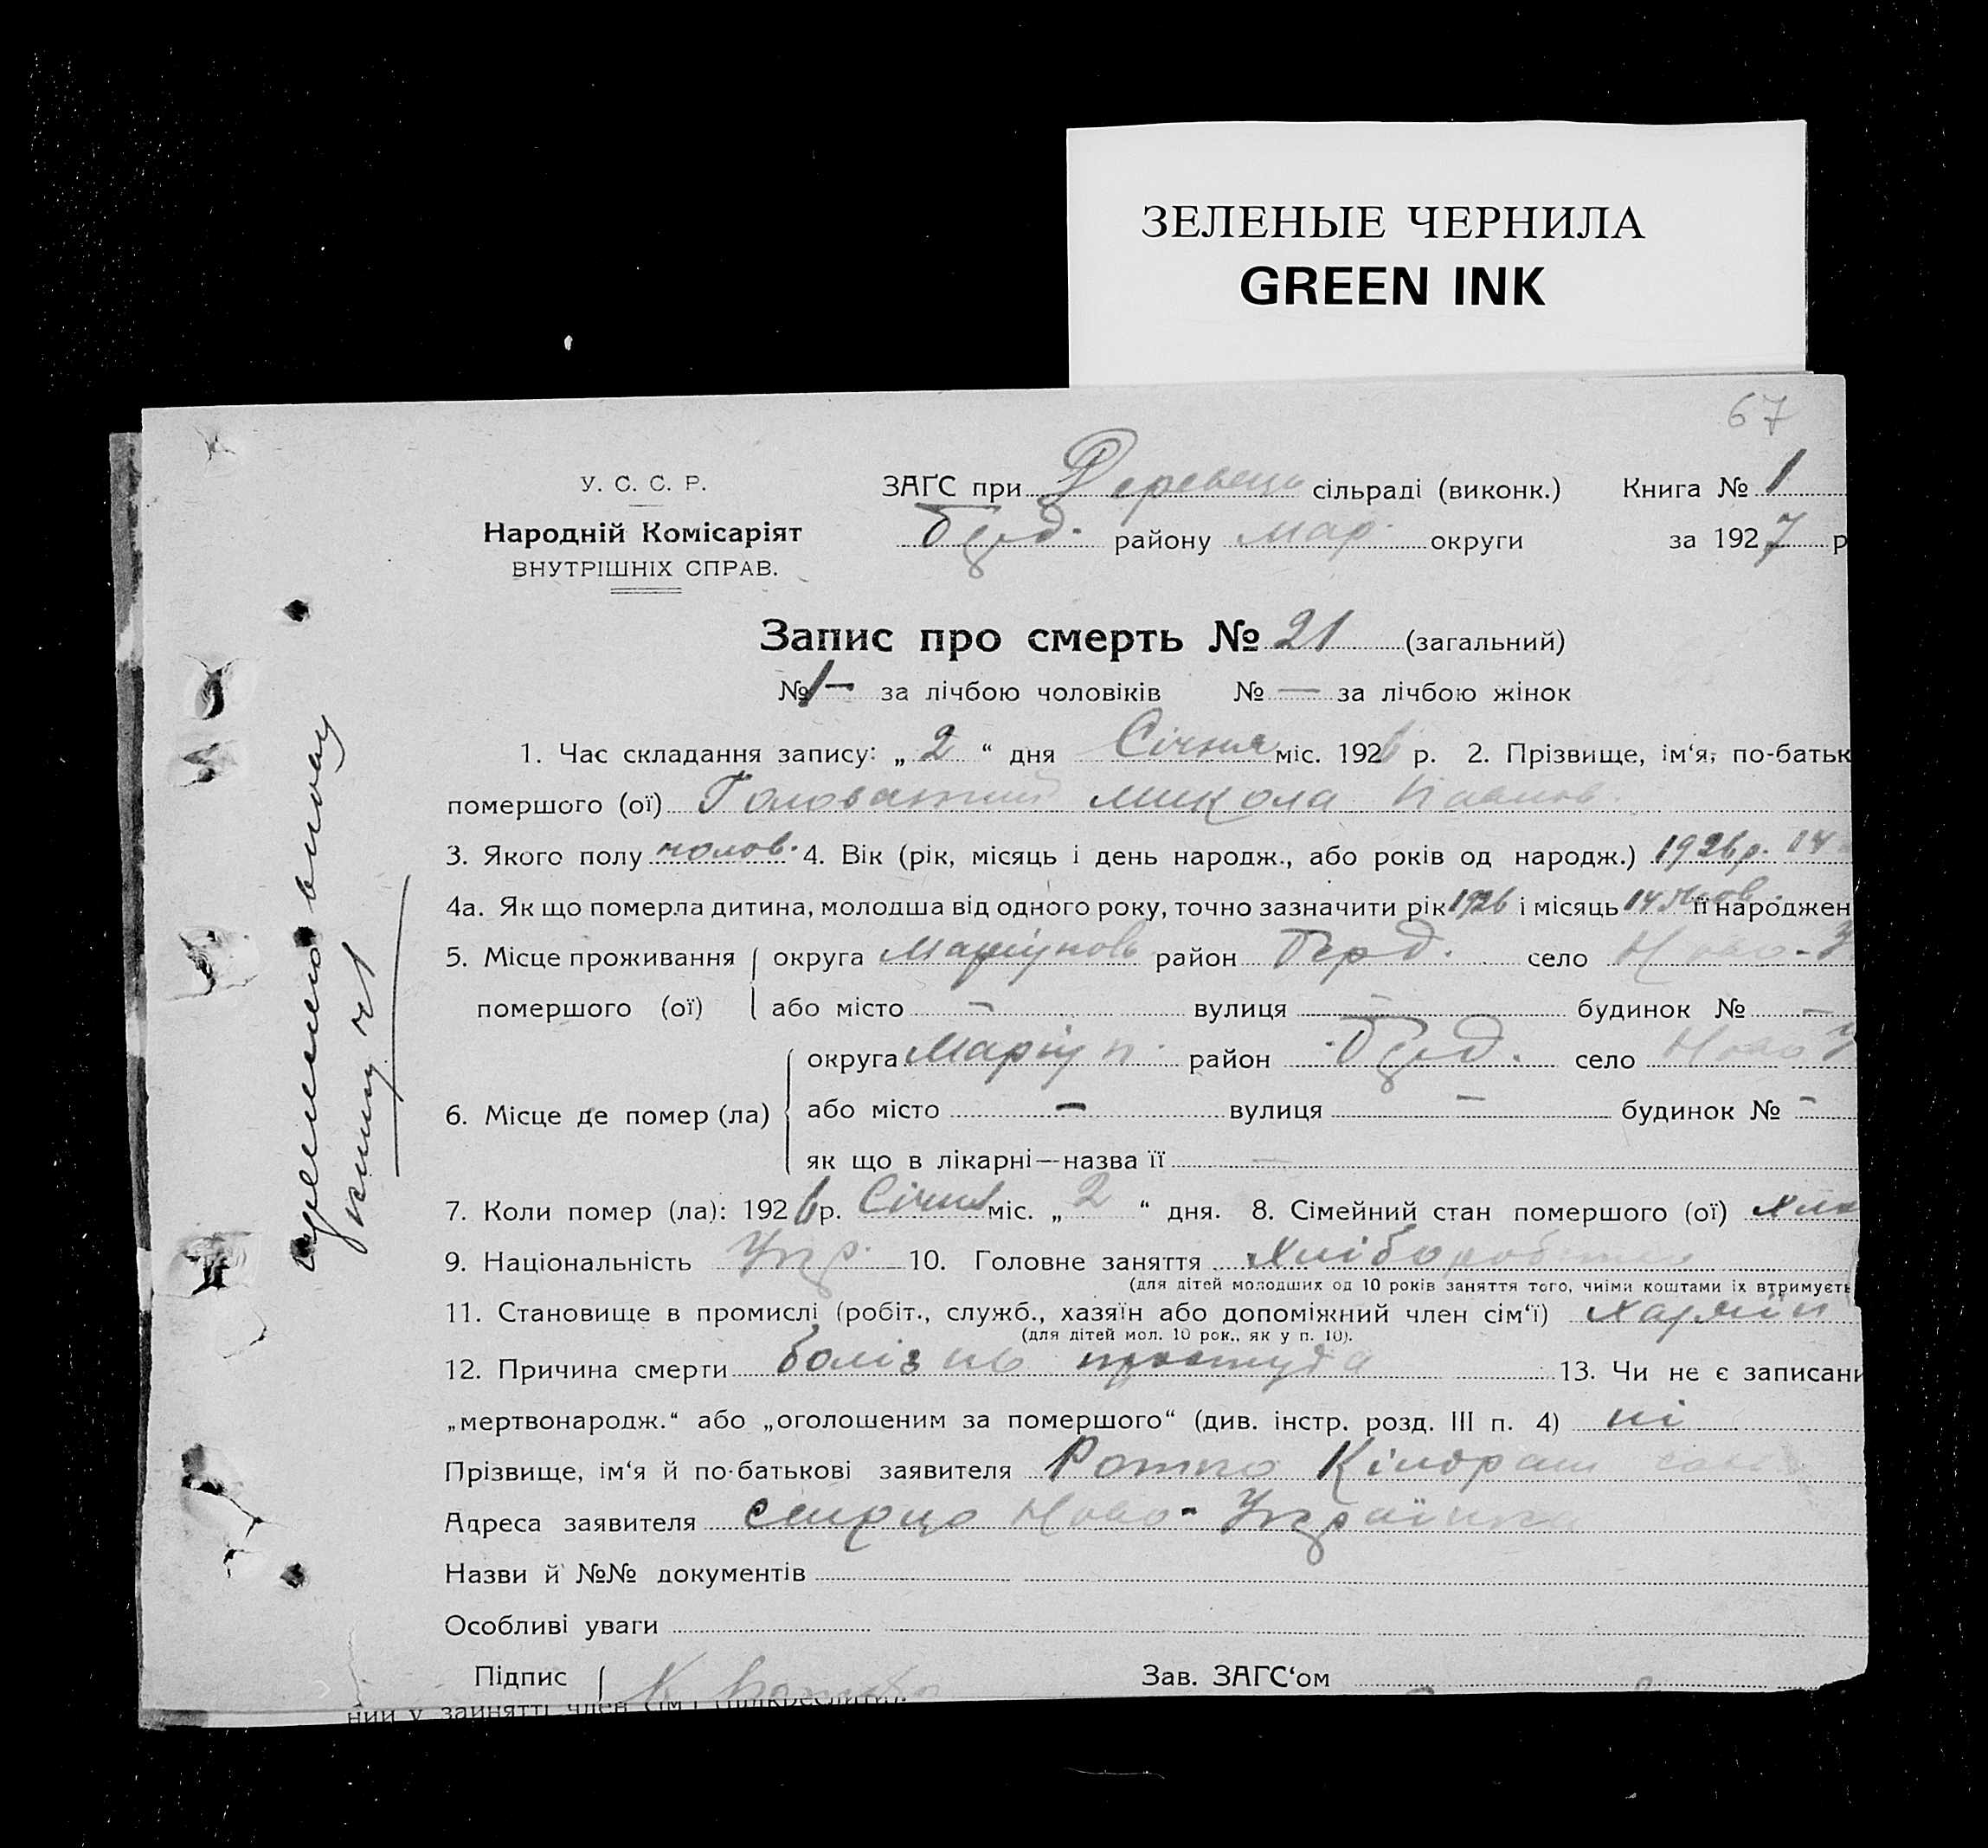 ЗЕЛЕНЫЕ ЧЕРНИЛА
GREEN INK
67
У. С. С. Р.
Народній Комісаріят
ВНУТРІШНІХ СПРАВ.
ЗАҐС при сільраді (виконк.) Книга № 1
району Мар. округи за 1927 р
Запис про смерть № 21 (загальний)
№ 1 — за лічбою чоловіків № — за лічбою жінок
1. Час складання запису: „ 2 “ дня Січня міс. 1926 р. 2. Прізвище, ім‘я, по-батьк
помершого (ої) Головатий Микола Павлов.
3. Якого полу чолов. 4. Вік (рік, місяць і день народж., або років од народж.) 1926 р. 14
4а. Як що померла дитина, молодша від одного року, точно зазначити рік 1926 і місяць 14 її народжен
5. Місце проживання округа Маріупов район Берд. село Ново-У
помершого (ої) або місто — вулиця — будинок № —
округа Маріуп. район село Ново У
6. Місце де помер (ла) або місто — вулиця — будинок № —
як що в лікарні—назва її —
7. Коли помер (ла): 1926 р. Січня міс. „ 2 “ дня. 8. Сімейний стан помершого (ої)
9. Національність Укр. 10. Головне заняття Хліборобство
(для дітей молодших од 10 років заняття того, чиїми коштами їх втримуєть
11. Становище в промислі (робіт., служб., хазяїн або допоміжний член сім‘ї)
(для дітей мол. 10 рок., як у п. 10).
12. Причина смерти болізнь простуда 13. Чи не є записани
„мертвонародж.“ або „оголошеним за помершого“ (див. інстр. розд. III п. 4) ні
Прізвище, ім‘я й по-батькові заявителя Кіндрат
Адреса заявителя Ново-Українка
Назви й №№ документів
Особливі уваги
Підпис Зав. ЗАҐС‘ом
ний у занятті член сім‘ї (підкреслити).
книгу №1